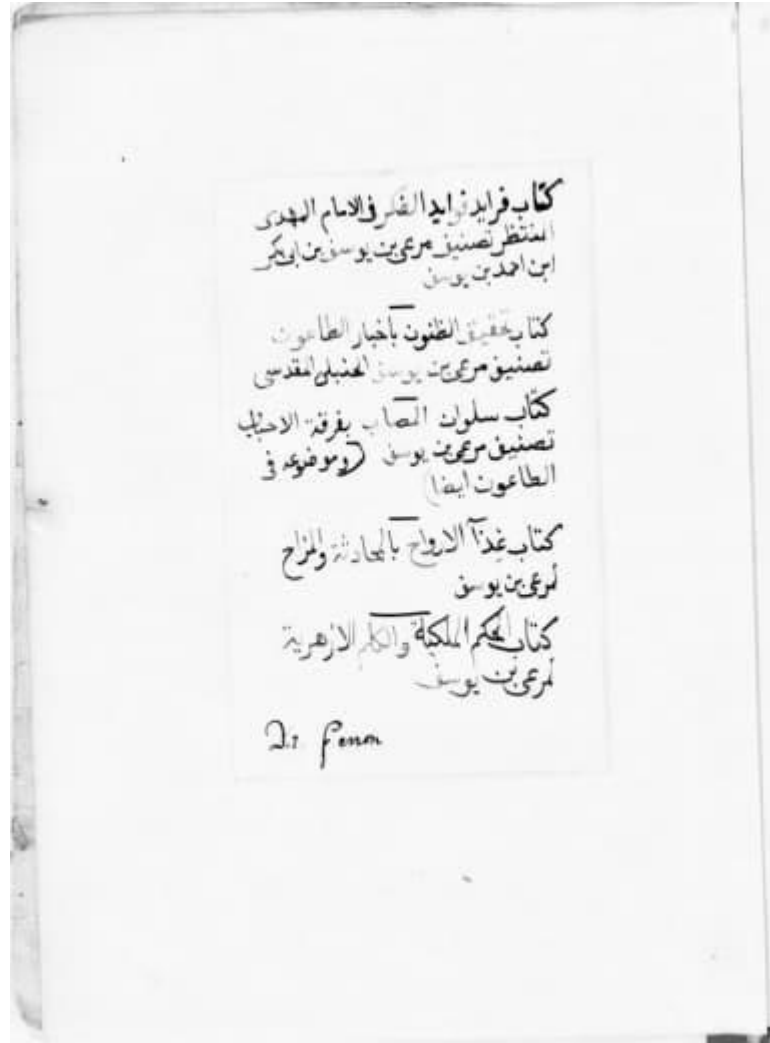 كتاب فرايد فوايد الفكر في الامام المهدى
المنتظر تصنيف مرعى بن يوسف بن ابى بكر
ابن احمد بن يوسف
كتاب تحقيق الظنون بأخبار الطاعون
تصنيف مرعى بن يوسف الحنبلى المقدسى
كتاب سلوان المصاب بفرقة الاحباب
تصنيف مرعى بن يوسف (وموضوعه في
الطاعون ايضا)
كتاب غذآ الارواح بالمحادثة والمزاح
لمرعى بن يوسف
كتاب الحكم الملكية والكلم الازهرية
لمرعى بن يوسف
fenon